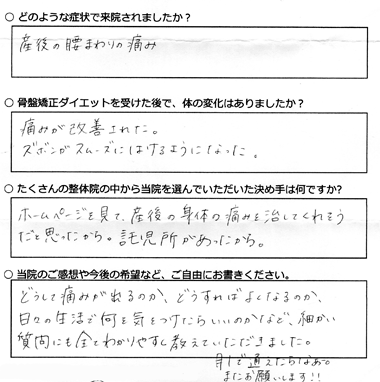 ○ どのような症状で来院されましたか?
産後の腰まわりの痛み
○ 骨盤矯正ダイエットを受けた後で、体の変化はありましたか?
痛みが改善された。
ズボンがスムーズにはけるようになった。
○ たくさんの整体院の中から当院を選んでいただいた決め手は何ですか?
ホームページを見て、産後の身体の痛みを治してくれそう
だと思ったから。託児所があったから。
○ 当院のご感想や今後の希望など、ご自由にお書きください。
どうして痛みが出るのか、どうすればよくなるのか、
日々の生活で何を気をつけたらいいのかなど、細かい
質問にも全てわかりやすく教えていただきました。
で通えたらなあ〜。
またお願いします!!